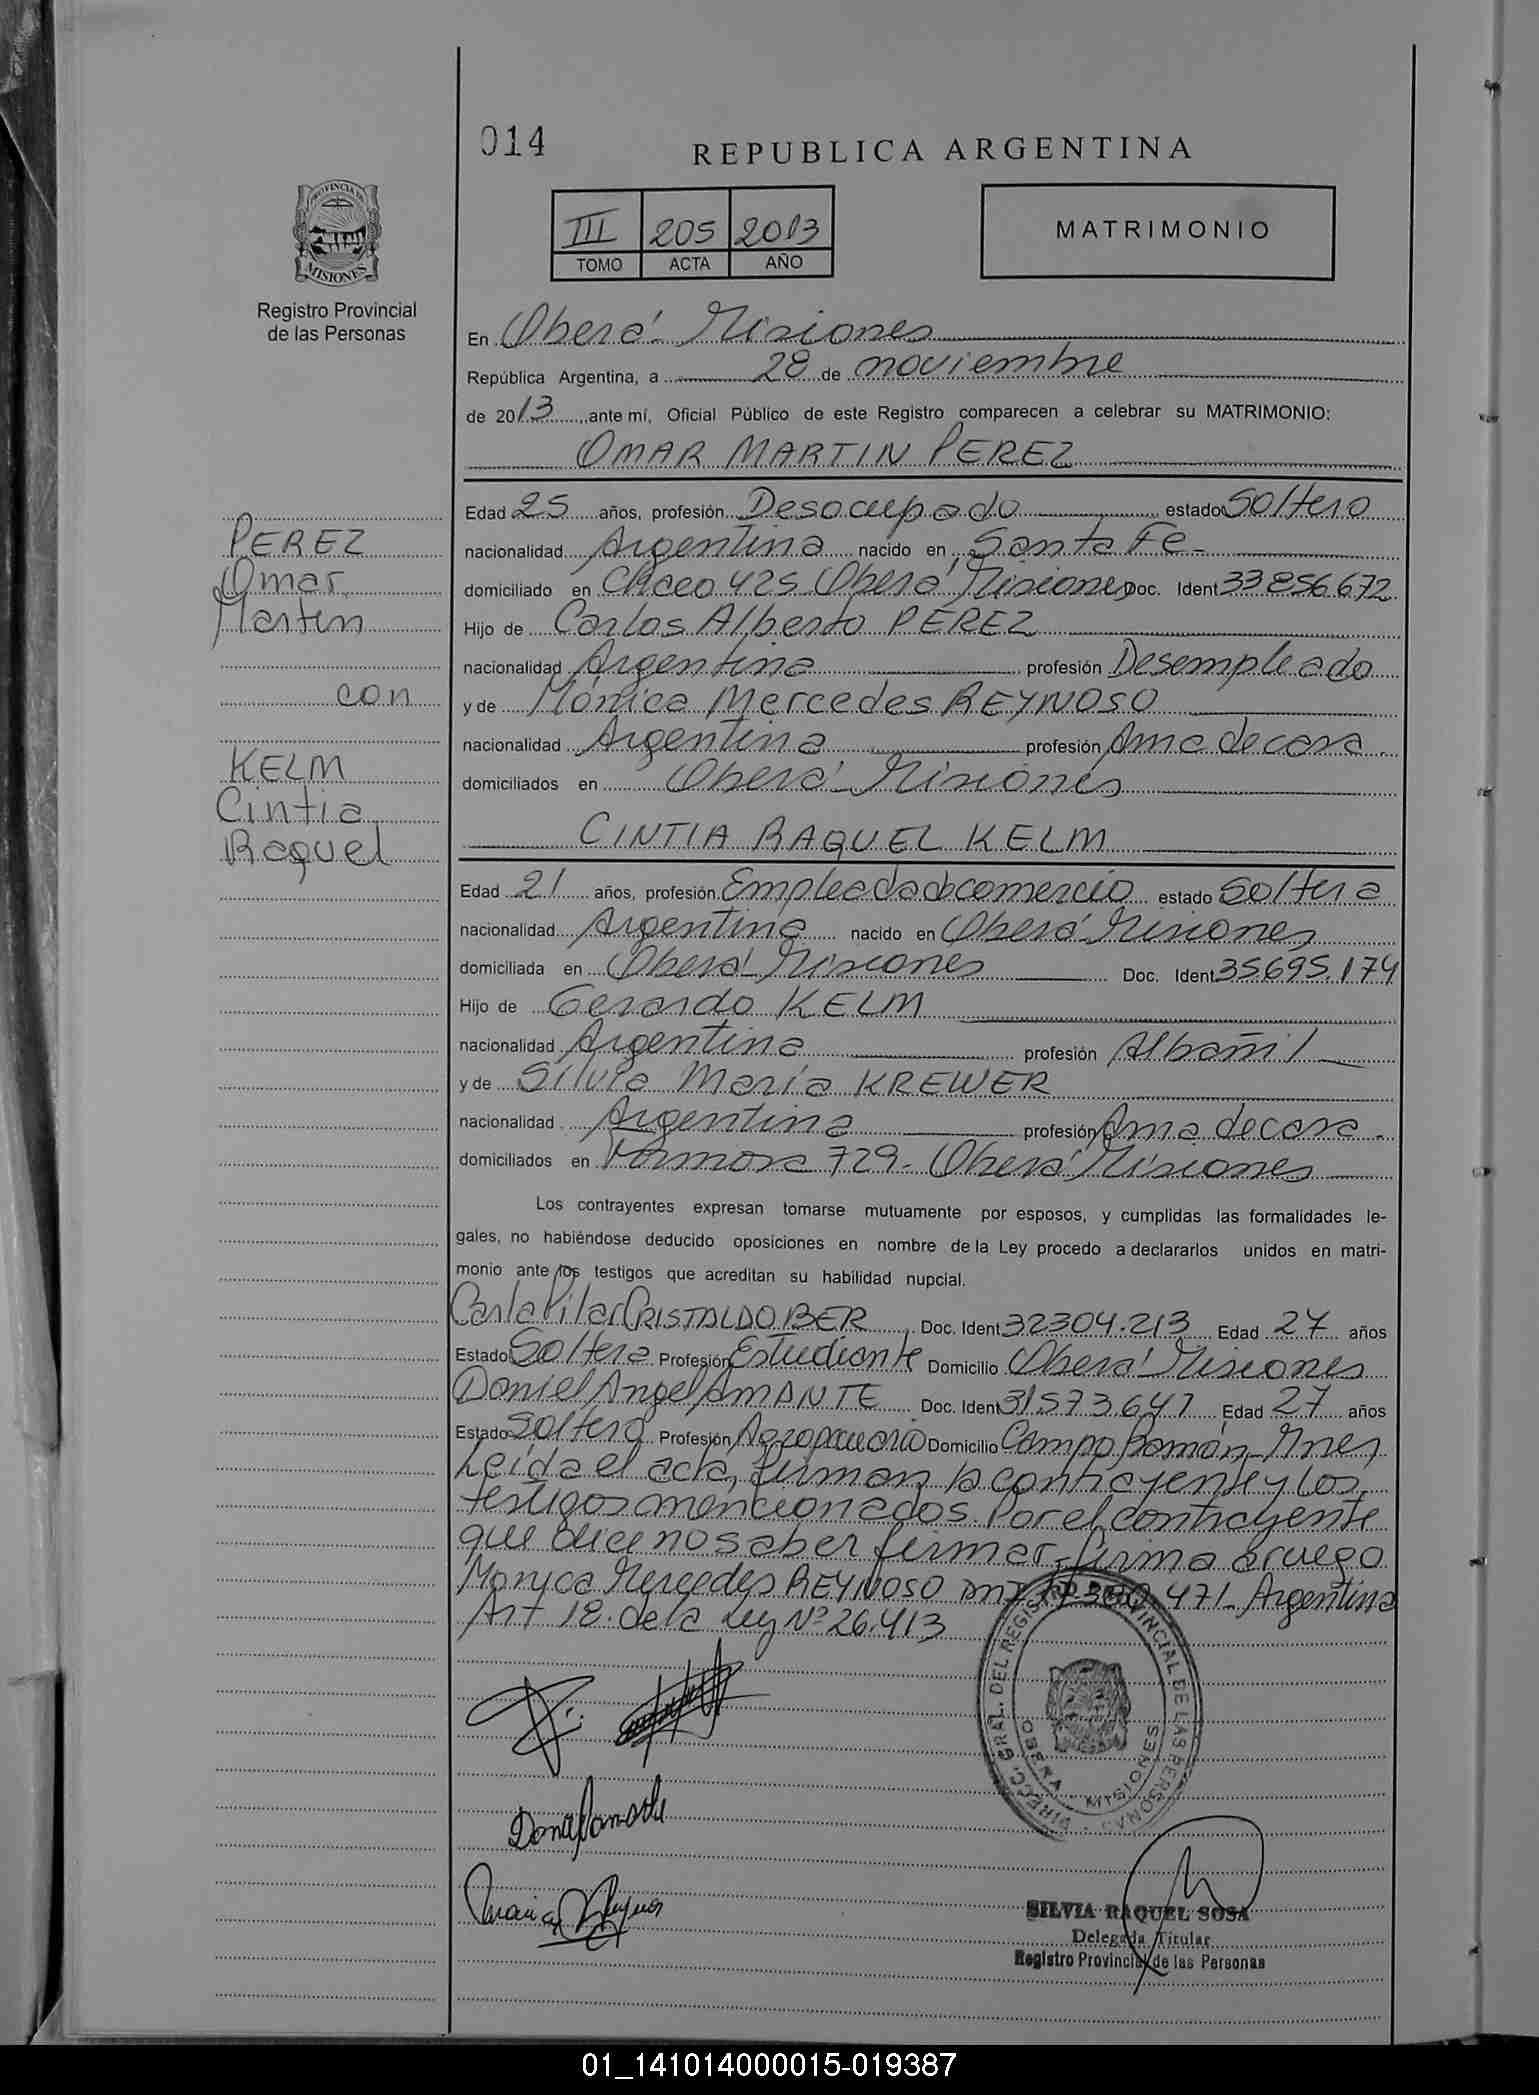 014
REPUBLICA ARGENTINA
PROVINCIA DE
MISIONES
Registro Provincial
de las Personas
III 205 2013
TOMO ACTA AÑO
MATRIMONIO
En Oberá - Misiones
República Argentina, a 28 de noviembre
de 2013 ante mí, Oficial Público de este Registro comparecen a celebrar su MATRIMONIO:
OMAR MARTIN PEREZ
PEREZ
Omar
Martin
con
KELM
Cintia
Raquel
Edad 25 años, profesión Desocupado estado Soltero
nacionalidad Argentina nacido en Santa Fe -
domiciliado en Chaco 425 Oberá Misiones Doc. Ident 33856672
Hijo de Carlos Alberto PEREZ
nacionalidad Argentina profesión Desempleado
y de Mónica Mercedes REYNOSO
nacionalidad Argentina profesión Ama de casa.
domiciliados en Oberá - Misiones
CINTIA RAQUEL KELM
Edad 21 años, profesión Empleada de comercio estado Soltera
nacionalidad Argentina nacido en Oberá Misiones
domiciliada en Oberá - Misiones Doc. Ident 35695.174
Hijo de Gerardo KELM
nacionalidad Argentina profesión Albañil
y de Silvia María KREWER
nacionalidad Argentina profesión Ama de casa.
domiciliados en Formosa 729 - Oberá Misiones
Los contrayentes expresan tomarse mutuamente por esposos, y cumplidas las formalidades le-
gales, no habiéndose deducido oposiciones en nombre de la Ley procedo a declararlos unidos en matri-
monio ante los testigos que acreditan su habilidad nupcial.
Carla Pilar CRISTALDO BER Doc. Ident 32304.213 Edad 27 años
Estado Soltera Profesión Estudiante Domicilio Oberá Misiones
Daniel Angel AMANTE Doc. Ident 31.573.647 Edad 27 años
Estado Soltero Profesión Agropecuario Domicilio Campo Ramón - Mnes
Leída el acta, firman la contrayente y los
testigos mencionados. Por el contrayente
que dice no saber firmar, firma a ruego
Monica Mercedes REYNOSO DNI 471 - Argentina
Art 18. de la Ley Nº 26.413
DIRECC. GRAL. DEL REGISTRO PROVINCIAL DE LAS PERSONAS
OBERA - MISIONES
SILVIA RAQUEL SOSA
Delegada Titular
Registro Provincial de las Personas
01_141014000015-019387